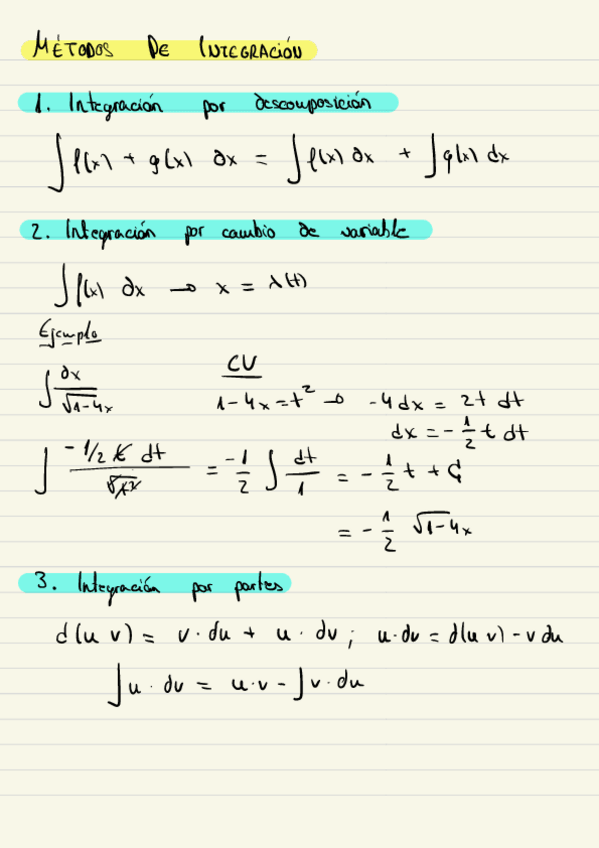 MÉTODOS DE INTEGRACIÓN
1. Integración por descomposición
∫ f(x) + g(x) dx = ∫ f(x) dx + ∫ g(x) dx
2. Integración por cambio de variable
∫ f(x) dx → x = λ(t)
Ejemplo
∫ dx/√1-4x
CV
1-4x=t² → -4dx = 2t dt
dx = -1/2 t dt
∫ -1/2 t dt/√t² = -1/2 ∫ dt/1 = -1/2 t + C
= -1/2 √1-4x
3. Integración por partes
d(u v) = v·du + u·dv; u·dv = d(u v) - v du
∫ u·dv = u·v - ∫ v·du